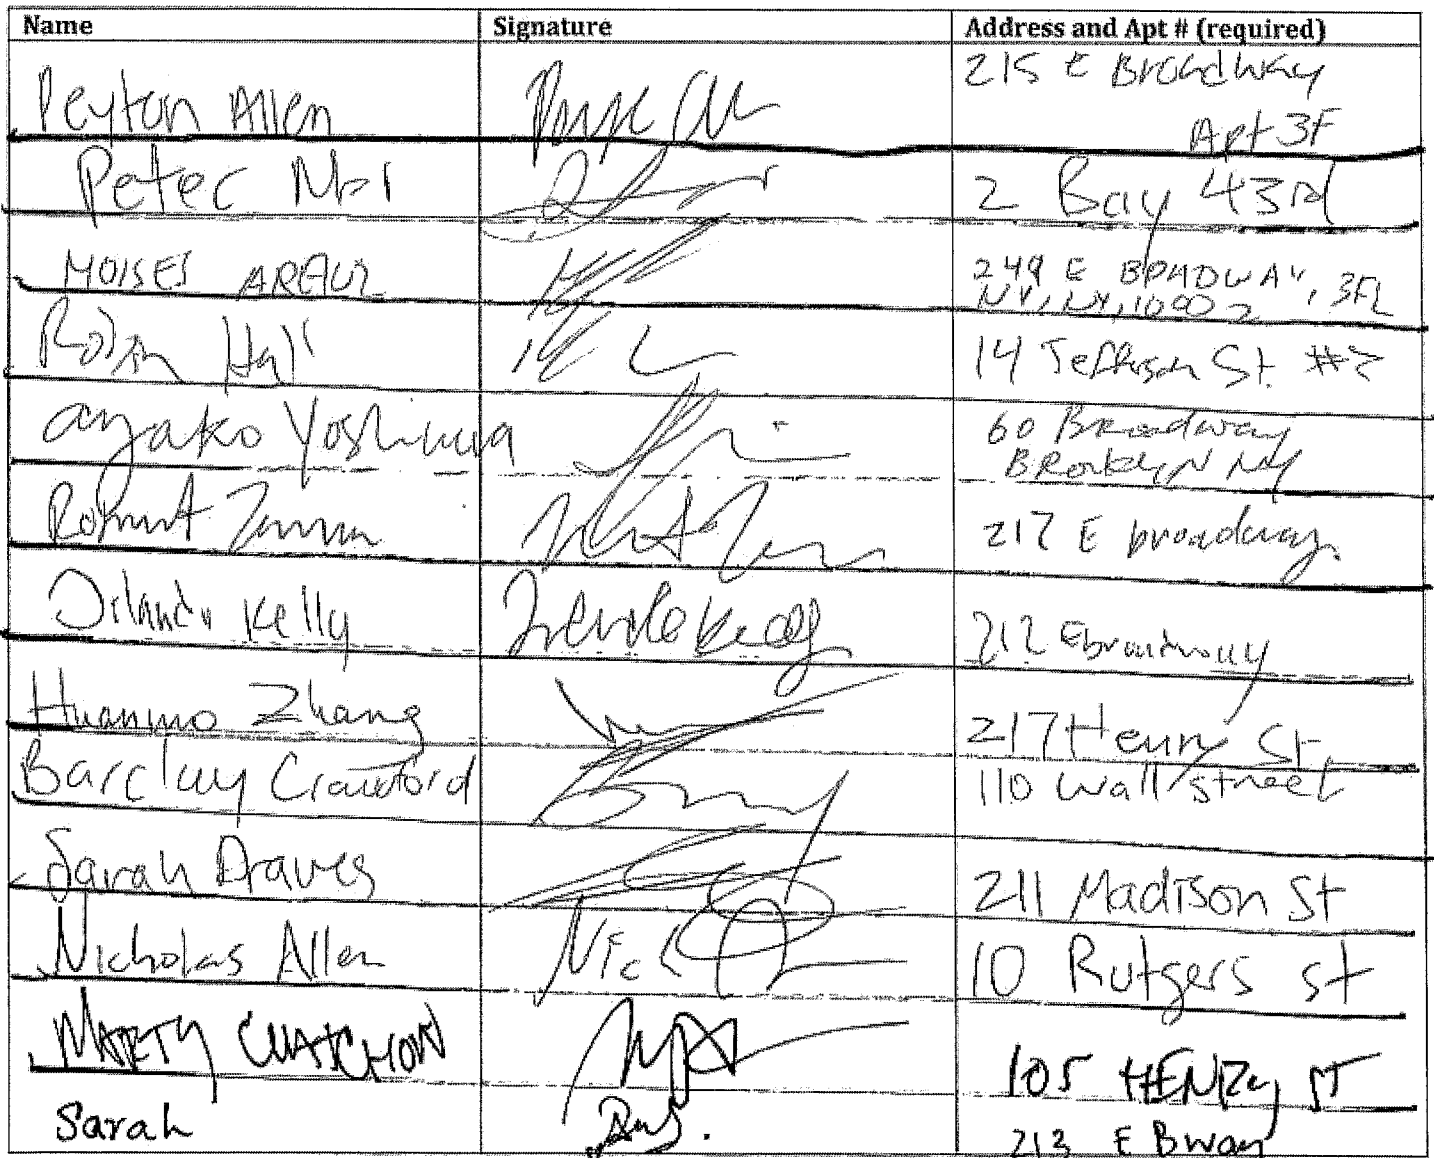 Name Signature Address and Apt # (required)
Peyton Allen 215 E Broadway
Apt 3F
Peter 2 Bay 43rd
MOISES 249 E BRADWAY, 3FL
NY, NY, 10002
Robin Hall 14 Jefferson St. #2
Ayako Yoshimura 60 Broadway
BROOKLYN NY
Robert 217 E broadway.
Orlando Kelly 212 E broadway
Zhang 217 Henry St.
Barclay Crawford 110 Wall street
Sarah Draves 211 Madison St
Nicholas Allen Nic 10 Rutgers St
MARTY 105 HENRY ST
Sarah 213 E Bway